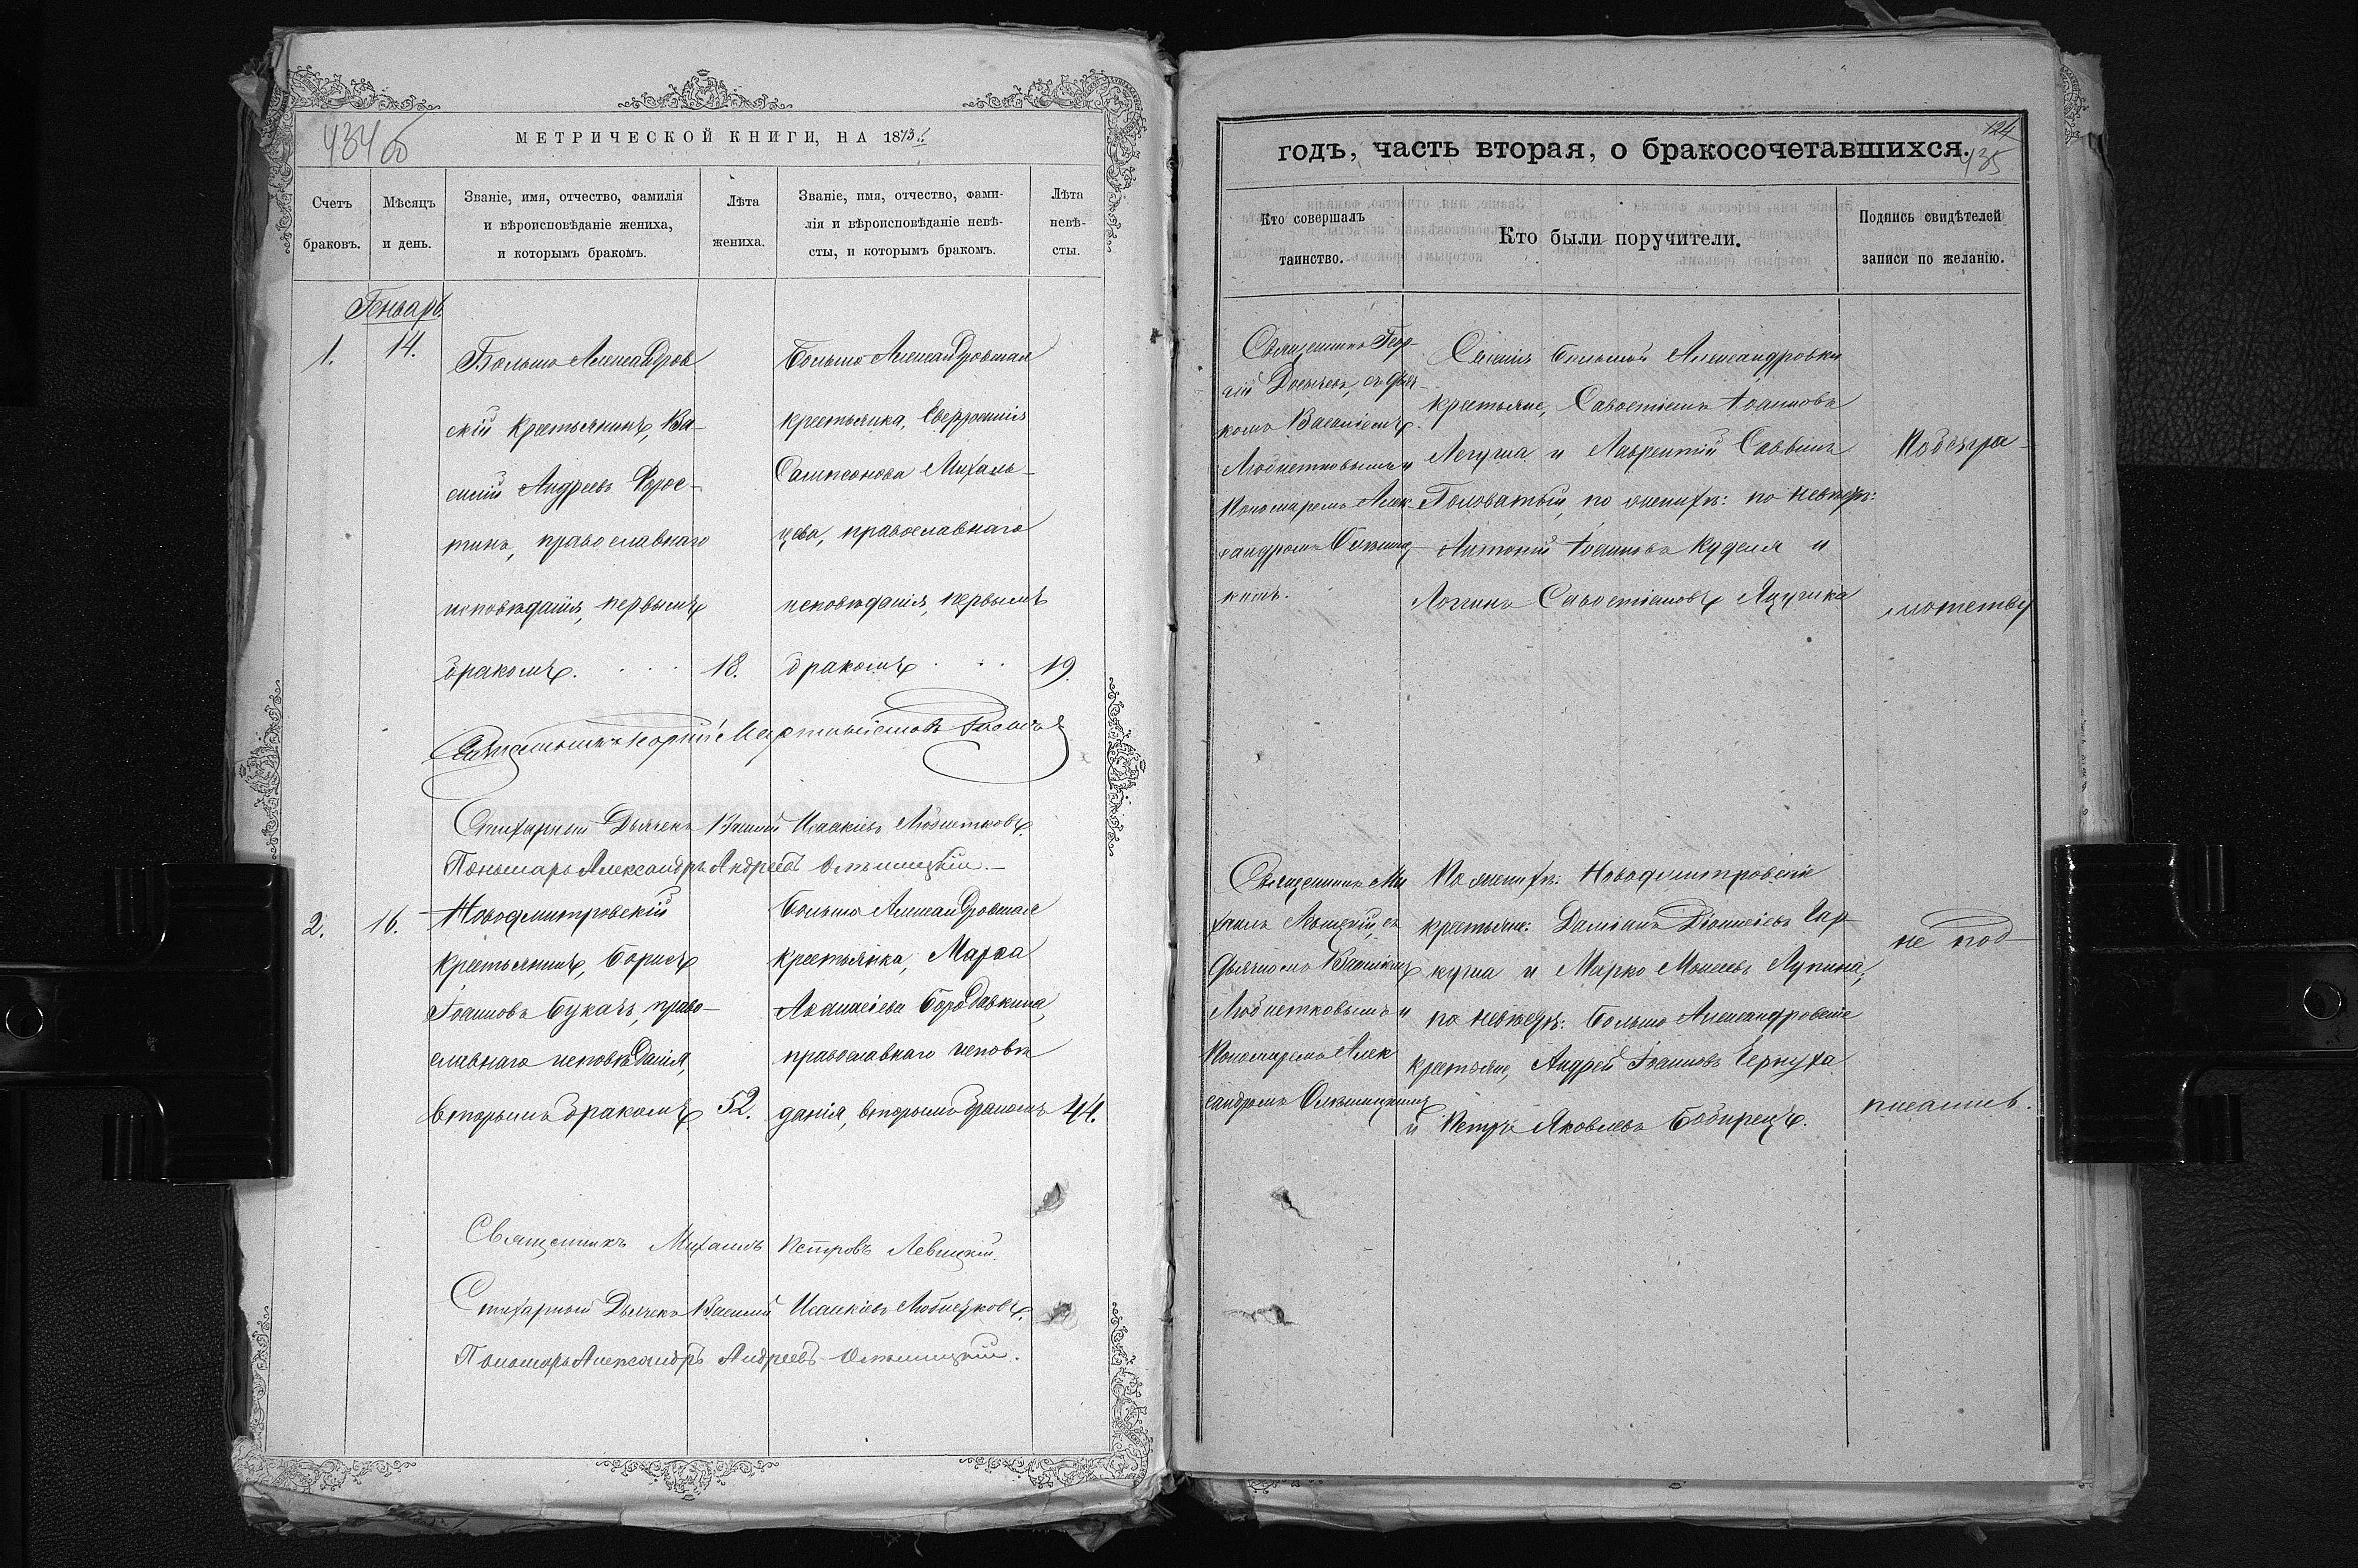 434 об
МЕТРИЧЕСКОЙ КНИГИ, НА 1873й
Счетъ браковъ.
Мѣсяцъ и день.
Званіе, имя, отчество, фамилія
и вѣроисповѣданіе жениха,
и которымъ бракомъ.
Лѣта жениха.
Званіе, имя, отчество, фами-
лія и вѣроисповѣданіе невѣ-
сты, и которымъ бракомъ.
Лѣта невѣ-
сты.
Генварь
1.
14.
Больше Александров
скій крестьянинъ, Ва-
силій Андреевъ Форос-
тинъ, православнаго
исповѣданія, первымъ
бракомъ.
18.
Больше Александровская
крестьянка, Евфросинія
Сампсонова Михаль-
цева, православнаго
исповѣданія, первымъ
бракомъ
19.
Священникъ Георгій
Стихарный Дьячекъ Василій Исаакіевъ Любистковъ
Пономарь Александръ Андреевъ
2.
16.
Новодмитровскій
крестьянинъ, Борисъ
Іоанновъ Букачъ, право-
славнаго исповѣданія,
вторымъ бракомъ
52.
Больше Александровская
крестьянка, Марѳа
Аѳанасіева Бородавкина,
православнаго исповѣ
данія, вторымъ бракомъ
44.
Священникъ Михаилъ Петровъ Левицкій
Стихарный Дьячекъ Василій Исаакіевъ Любистковъ.
Пономарь Александръ Андреевъ
124
435
годъ, часть вторая, о бракосочетавшихся.
Кто совершалъ
таинство.
Кто были поручители.
Подпись свидѣтелей
записи по желанію.
Священникъ Геор-
гій съ дьяч-
комъ Василіемъ
Любистковымъ и
Пономаремъ Алек-
сандромъ
Селенія Большой Александровки
крестьяне, Савостіанъ Іоанновъ
и Лаврентій Саввинъ
Головатый, по женихѣ: по невѣстѣ:
Антоній Іоанновъ Куделя и
Логгинъ Савостіановъ
По безгра-
мотству
Священникъ Ми
хаилъ Левицкій, съ
дьячкомъ Василіемъ
Любистковымъ и
Пономаремъ Алек
сандромъ
По женихѣ: Новодмитровскіе
крестьяне: Даміанъ Діонисіевъ Гар-
куша и Марко Моисеевъ Лупина,
по невѣстѣ: Больше Александровскіе
крестьяне, Андрей Іоанновъ Чернуха
и Петръ Яковлевъ
не под-
писались.